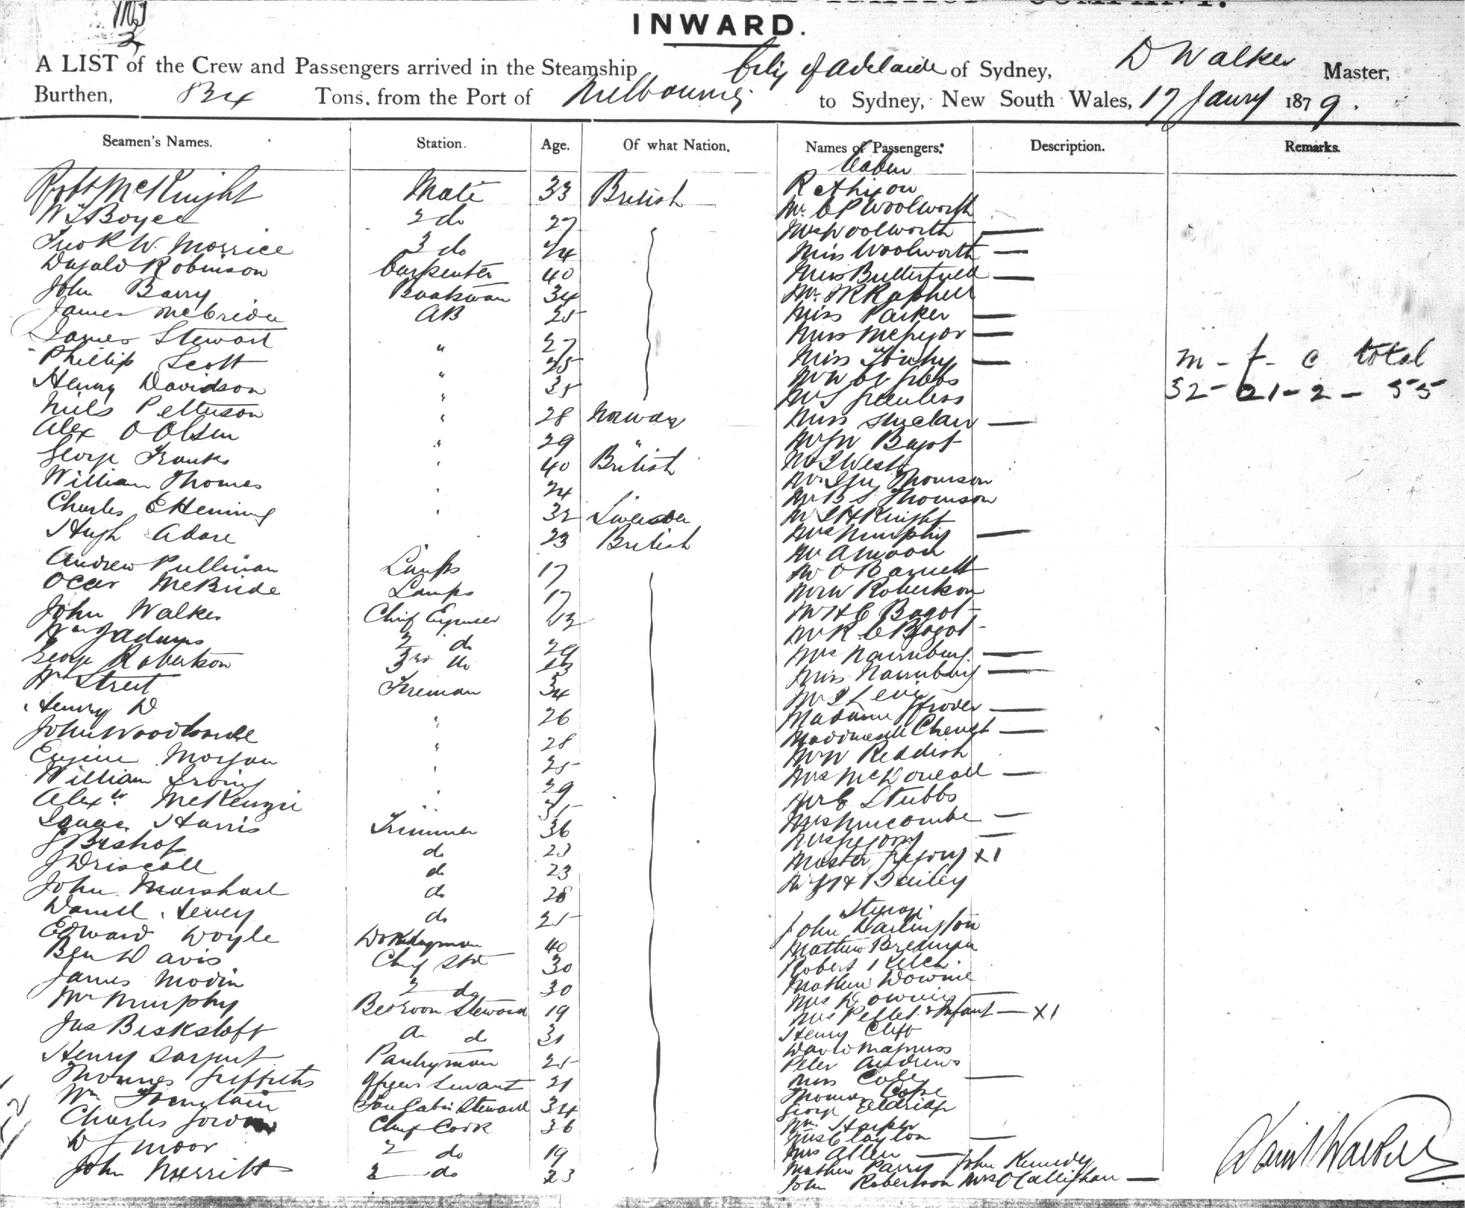 INWARD.
A LIST of the Crew and Passengers arrived in the Steamship City of Adelaide of Sydney, D Walker Master,
Burthen, 824 Tons, from the Port of Melbourne to Sydney, New South Wales, 17 Janry 1879.
Seamen's Names. Station. Age. Of what Nation. Names of Passengers. Description. Remarks.
Cabin
Robt McKnight Mate 33 British
W Boyce 2 do 27 Mr C P Woolworth
W. Morrice 3 do 24 Mrs Woolworth —
Dugald Robinson Carpenter 40 Miss Woolworth —
John Barry 34 Miss Butterfield —
James McBride AB 25 Mr Raphell
James Stewart " 27 Miss Parker —
Phillip Scott " 25 Miss McGregor —
m - f - c total
Henry Davidson " 35 Miss —
32 - 21 - 2 - 55
Niels Petterson " 28 Norway Mr Gibbs
Alex O Olsen " 29 " Mr S Peerless
George Franks " 40 British Miss Sinclair —
William Thomes " 24 Mr W Bagot
Charles E Hening " 32 Sweden Mr J West
Hugh Adare 23 British Mr Thomson
Andrew Pullinan Lamps 17 Mr B S Thomson
Ocar McBride Lamps 17 Mr J H Knight
John Walker Chief Engineer 42 Mrs Murphy —
Wm J Adams 2 do 29 Mr A Moon
George Robertson 3rd do 23 Mr O Barnett
Wm Street Fireman 34 Mr W Robertson
Henry D " 26 Mr H E Bagot
John Woodward " 28 Mr R C Bagot
Eugene Morgan " 25 Mrs Nairnburg —
William Irving " 29 Miss Nairnburg —
Alexr McKenzie " 35 Mr J Levi
Isaac Harris Trimmer 36 Madame —
J Bishop do 23 —
J Driscoll do 23 Mr W Reddish
John Marshall do 28 Mrs McDouall —
Daniel do 25 Mr E Stubbs
Edward Doyle Donkeyman 40 —
Ben Davis Chief Std 30 Mrs Gregory —
James Modin 2 do 30 Master Gregory x1
Wm Murphy Bedroom Steward 19 Bailey
Jas do 31
Henry Sargent Pantryman 25 John Darlington
Thomas Griffiths Officers Servant 21 Mathew
Wm Fountain Fore Cabin Steward 34 Robert
Charles Jordan Chief Cook 36 Mathew Downie
D J Moor 2 do 19 Mrs Downie
John Merritt 3 do 23 Mrs & Infant — x1
Henry
David Magnuss
Peter Andrews
Miss Cope —
Thomas Cope
George Eldridge
Wm Harper
Mrs Clayton —
Mrs Allen —
Mathew Parry John Kennedy
John Robertson Mrs O Callighan —
David Walker